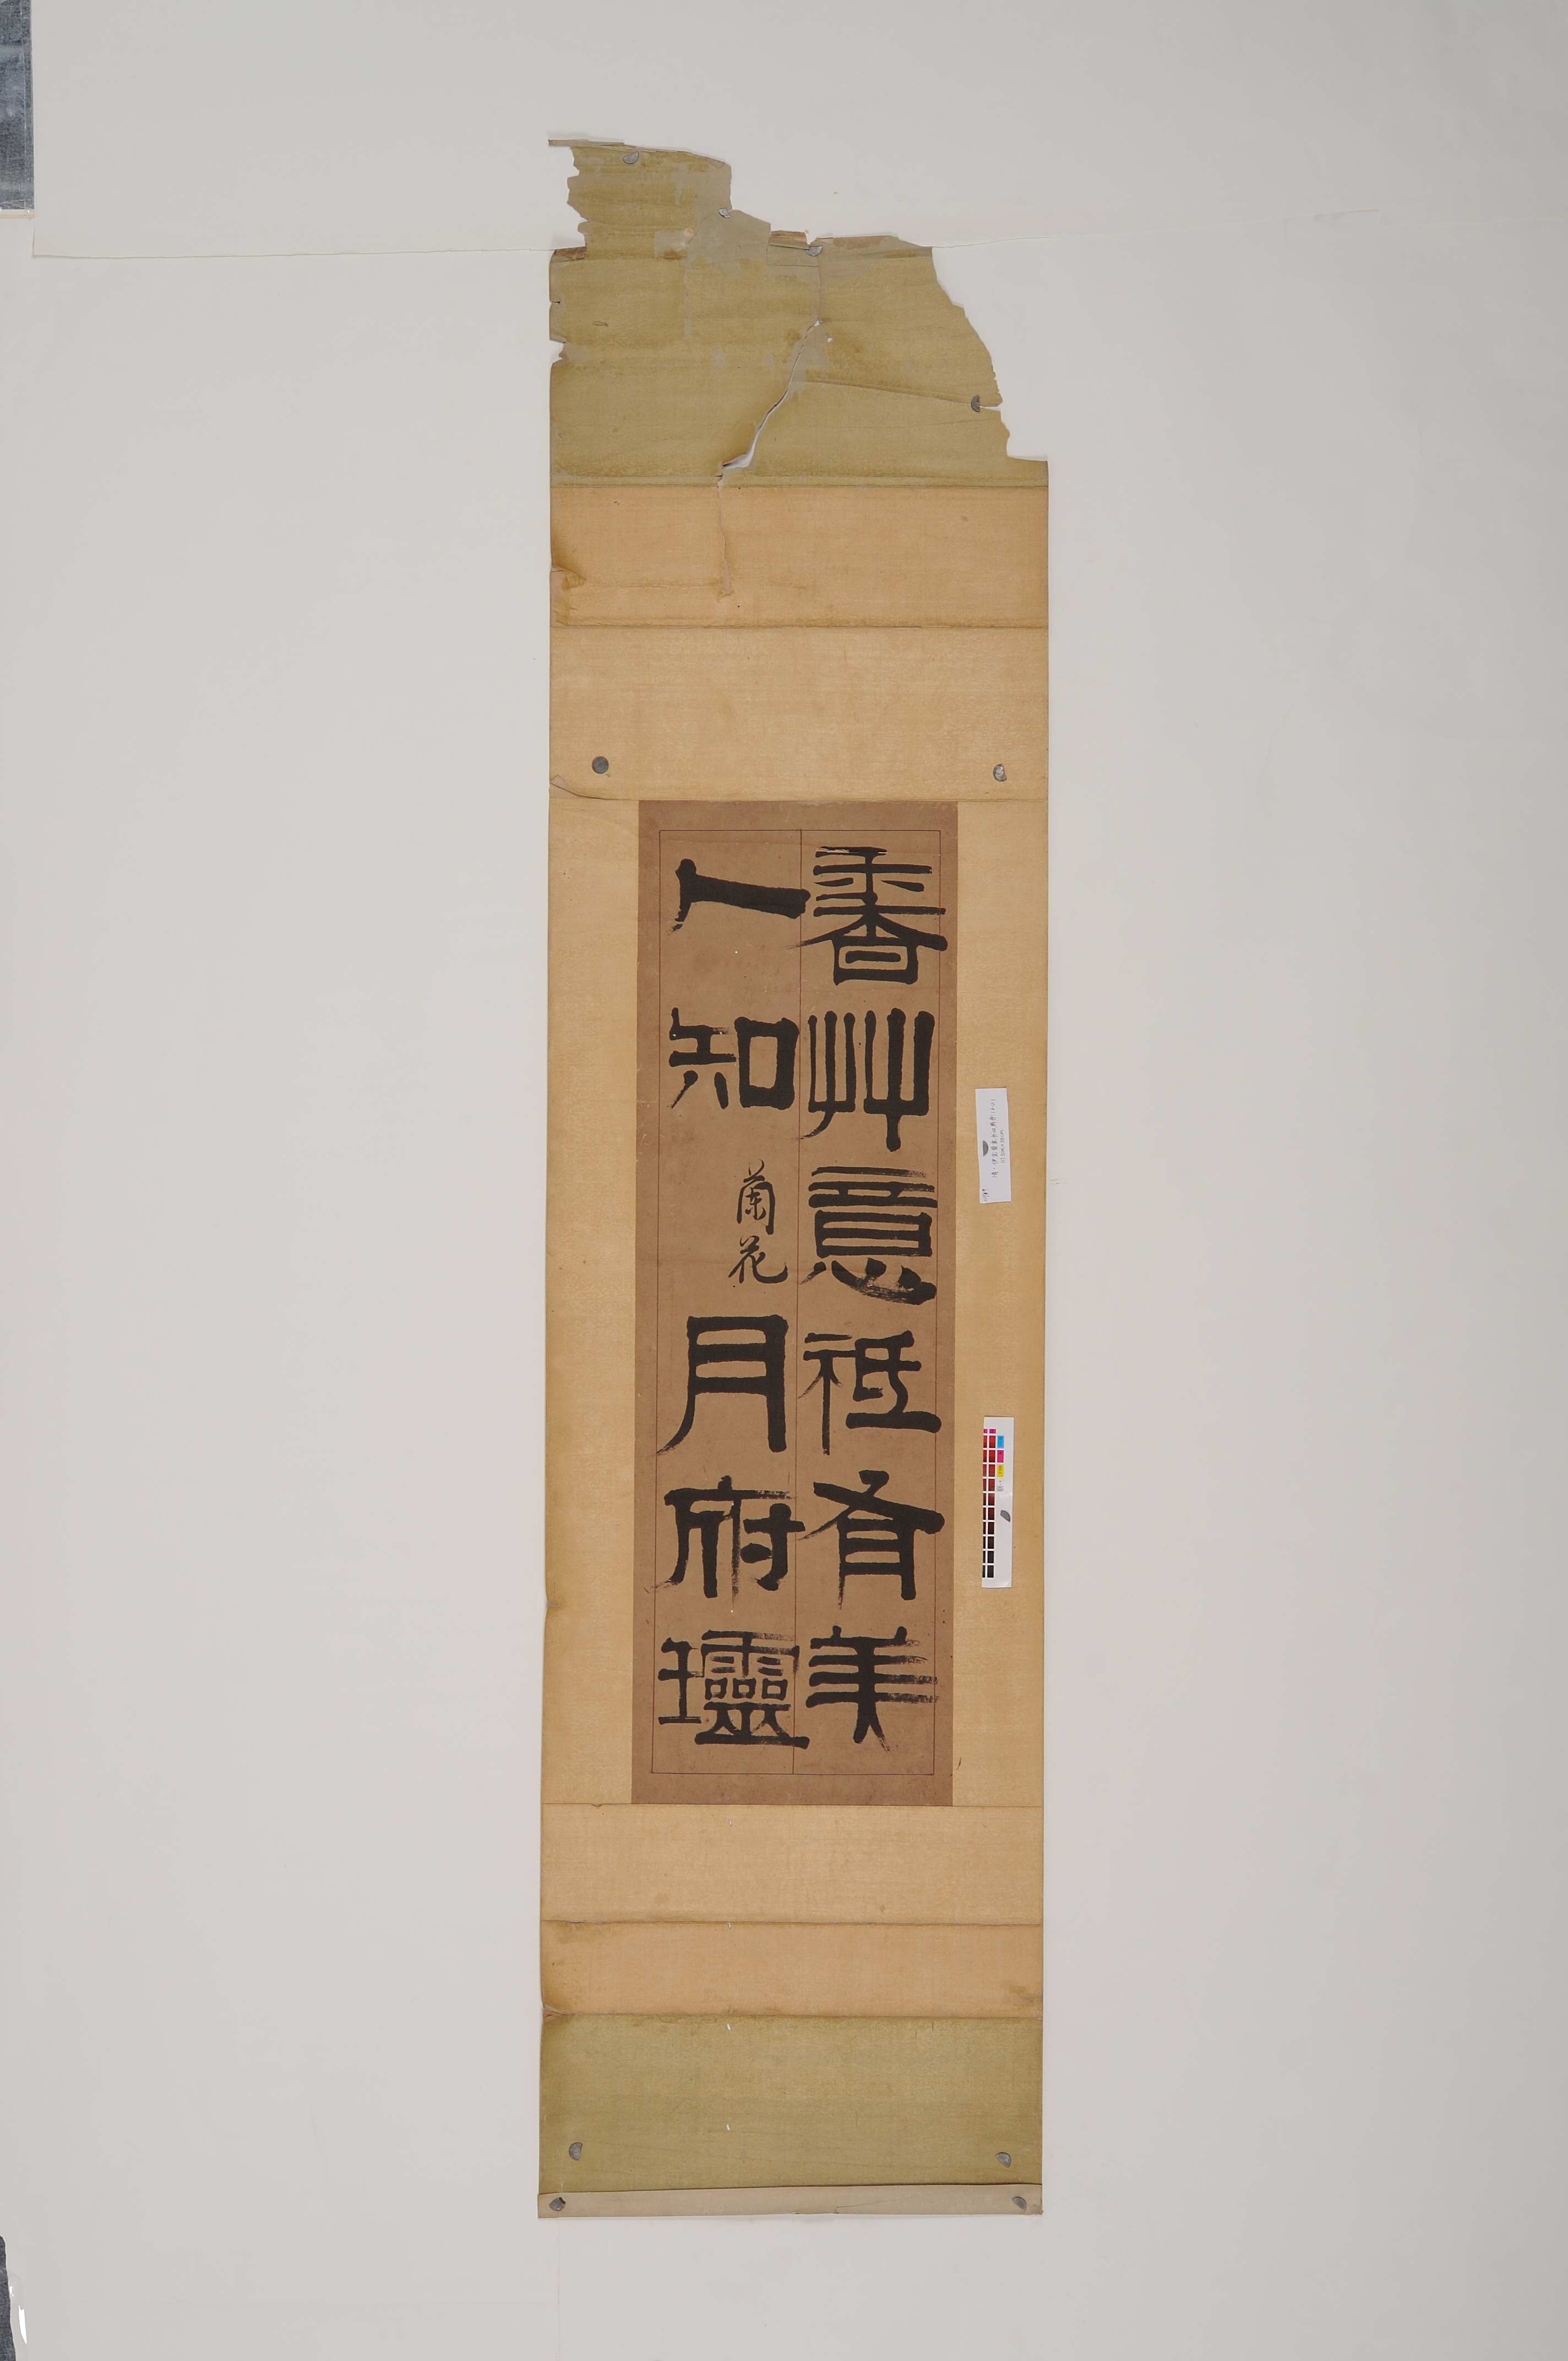 香艸意祗有美
人知 蘭花 月府𤫊